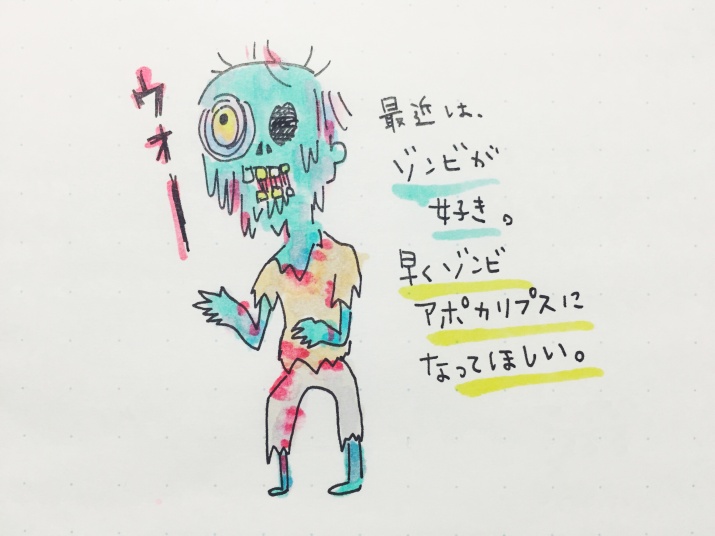 ウォー
最近は、
ゾンビが
好き。
早くゾンビ
アポカリプスに
なってほしい。